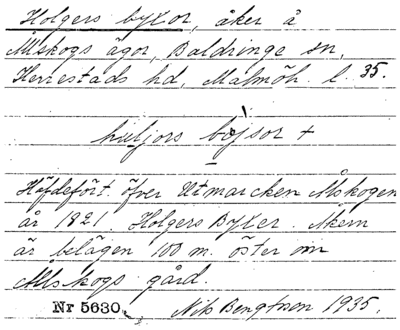 Holgers byxor, åker å
Allskogs ägor, Baldringe sn,
Herrestads hd, Malmöh. l. 35.
huljors bojsor +
Häfdefört öfver Utmarcken Allskogen
år 1821. Holgers Byxer. Åkern
är belägen 100 m. öster om
Allskogs gård.
Nr 5630. Nils Bengtsson 1935.